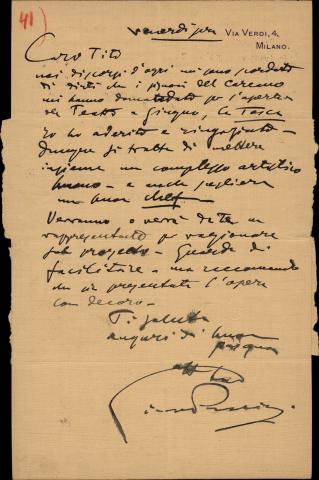 41)
venerdi sera
VIA VERDI, 4,
MILANO.
Caro Tito
nei discorsi d'ogni mi sono scordato
di dirti che i signori del Careno
mi hanno domandato per l'apertura
del Teatro a Giugno, la Tosca
Io ho aderito e ringraziato -
dunque si tratta di mettere
insieme un complesso artistico
buono - e anche scegliere
un buon chef -
Verranno o verrà da te un
rappresentante per ragionare
sul progetto - Guarda di
facilitare - ma raccomando
che sia presentata l'opera
con decoro -
Ti saluto
auguri di buona
pasqua
aff tuo
Giacomo Puccini